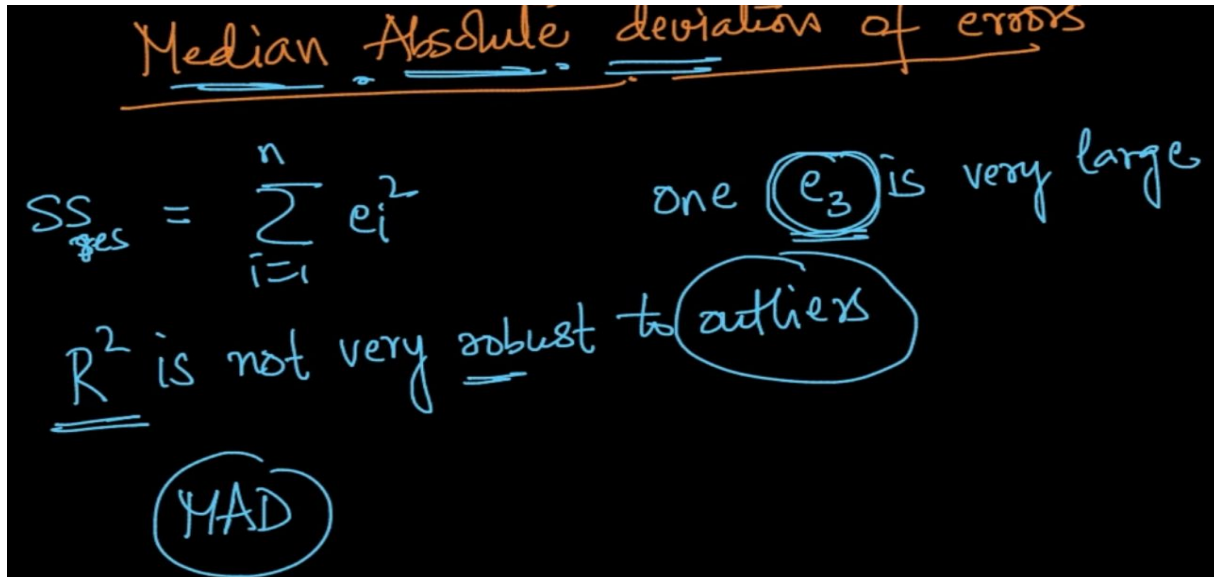 Median Absolute deviation of errors
SS_res = n Σ i=1 e_i^2
one e_3 is very large
R^2 is not very robust to outliers
MAD